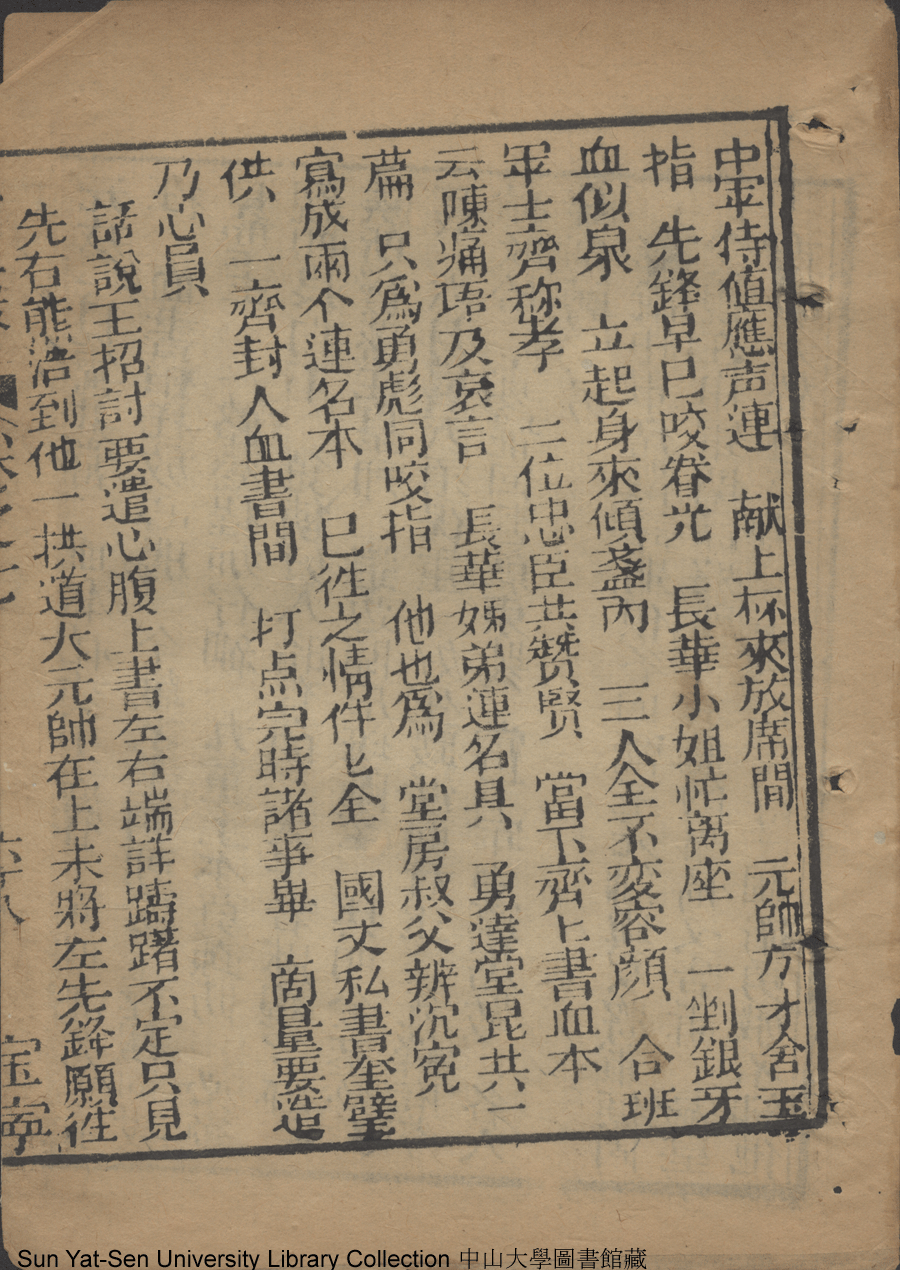 中军侍值應声連　献上杯來放席間　元師方才含玉
指　先鋒早巳咬眷光　長華小姐忙离座　一剉銀牙
血似泉　立起身來傾盞內　三人全不変容顔　合班
军士齊称孝　二位忠臣共赞贤　當下齊上書血本
云陳痛珸及哀言　長華姊弟連名具　勇達堂昆共一
篇　只爲勇彪同咬指　他也爲　堂房叔父辨沉冤
寫成兩个連名本　巳徃之情件匕全　國丈私書奎璧
供　一齊封人血書間　打点完時諸亊畢　商量要造
乃心員
話說王招討要遣心腹上書左右端詳躊躇不定只見
先右熊浩到他一拱道大元師在上未將左先鋒願徃
卷之七
六十八
宝寧
Sun Yat-Sen University Library Collection 中山大學圖書館藏